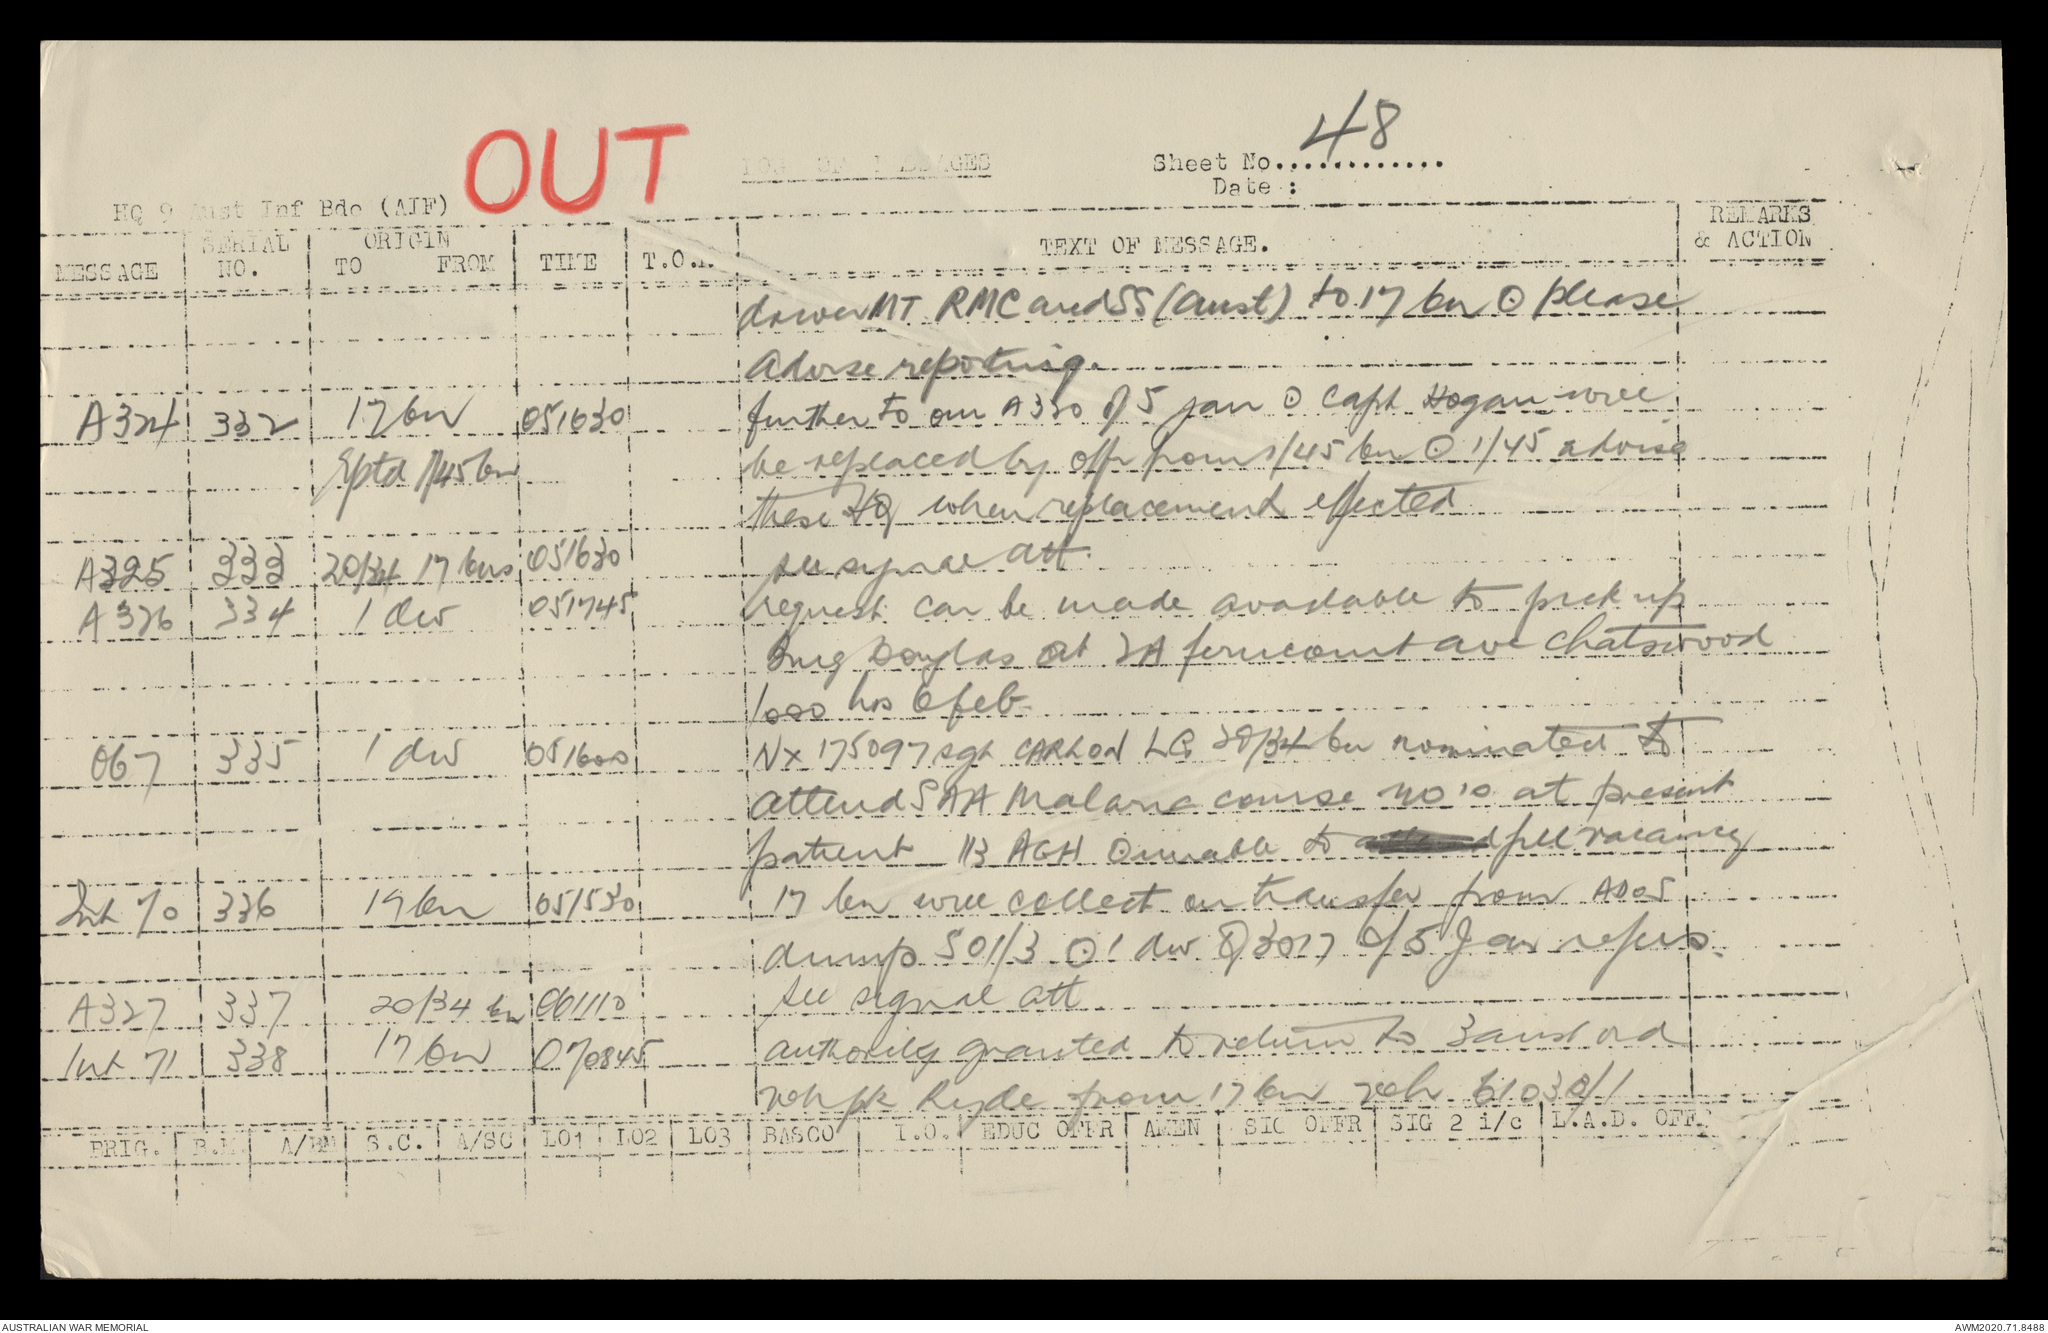 48
OUT
LOG OF MESSAGES
Sheet No.............
Date :
HQ 9 Aust Inf Bde (AIF)
MESSAGE SERIAL NO. ORIGIN TO FROM TIME T.O.R. TEXT OF MESSAGE. REMARKS & ACTION
driver MT RMC and SS (Aust) to 17 bn ⊙ please
advise reporting.
A324 332 17 bn 051630 further to our A320 of 5 jan ⊙ Capt Hogan will
Rptd 1/45 bn be replaced by offr from 1/45 bn ⊙ 1/45 advise
these HQ when replacement effected
A325 333 20/34 17 bns 051630 see signal att.
A326 334 1 div 051745 request car be made available to pick up
Brig Douglas at 2A ferncourt ave Chatswood
1000 hrs 6 feb
O67 335 1 div 051600 NX 175097 sgt CARLON LG 20/34 bn nominated to
attend SAA Malaria course no 10 at present
patient 113 AGH ⊙ unable to fill vacancy
Int 70 336 17 bn 051530 17 bn will collect on transfer from ADOS
dump S01/3 ⊙ 1 div Q3017 of 5 Jan refers.
A327 337 20/34 bn 061110 see signal att
Int 71 338 17 bn 070845 authority granted to return to 3 aust ord
veh pk Ryde from 17 bn veh
PRIG. B.M. A/BM S.C. A/SC LO1 LO2 LO3 BASCO I.O. EDUC OFFR AMEN SIG OFFR SIG 2 i/c L.A.D. OFFR
AUSTRALIAN WAR MEMORIAL
AWM2020.71.8488